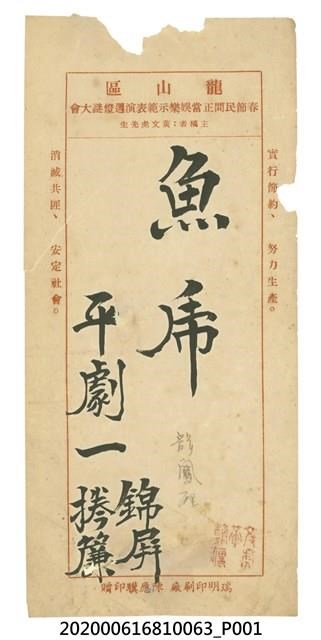 龍山區
春節民間正當娛樂示範表演週燈謎大會
主稿者:黃文虎先生
實行節約、 努力生產。
消滅共匪、 安定社會。
魚虎
平劇一
錦屏
捲簾
瑞明印刷廠 陳應騏印贈
202000616810063_P001